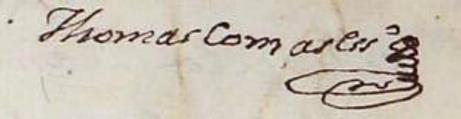 Thomas Comas Ess.º